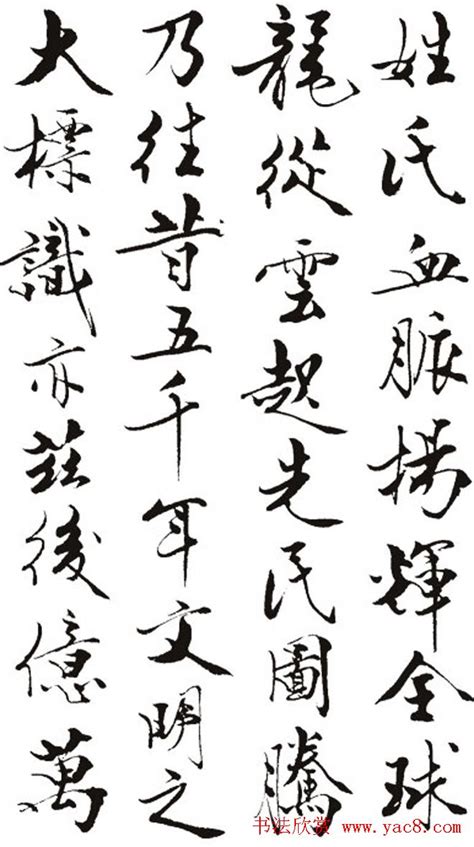 姓氏血脈揚輝全球
龍從雲起先民圖騰
乃往昔五千年文明之
大標識亦茲後億萬
书法欣赏 www.yac8.com